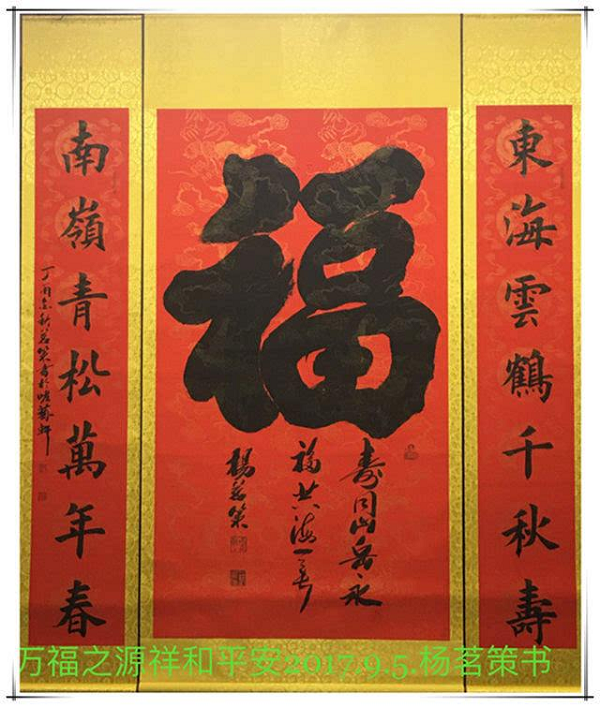 東海雲鶴千秋壽
福
寿同山岳永
福共海
楊茗策
南嶺青松萬年春
丁酉金秋茗策書於
万福之源祥和平安2017.9.5.杨茗策书